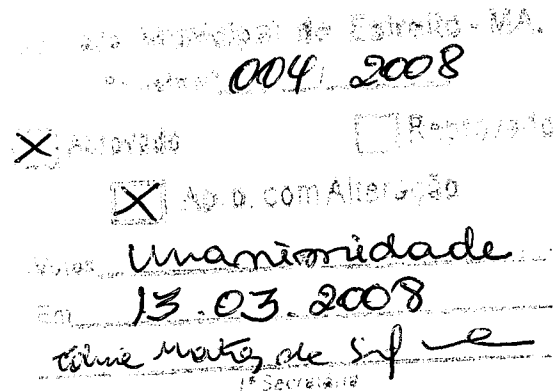 Municipal de Estreito - MA.
004 / 2008
X Aprovado Reprovado
X Apro. com Alteração
Votos Unanimidade
Em 13.03.2008
Matos de
1ª Secretária